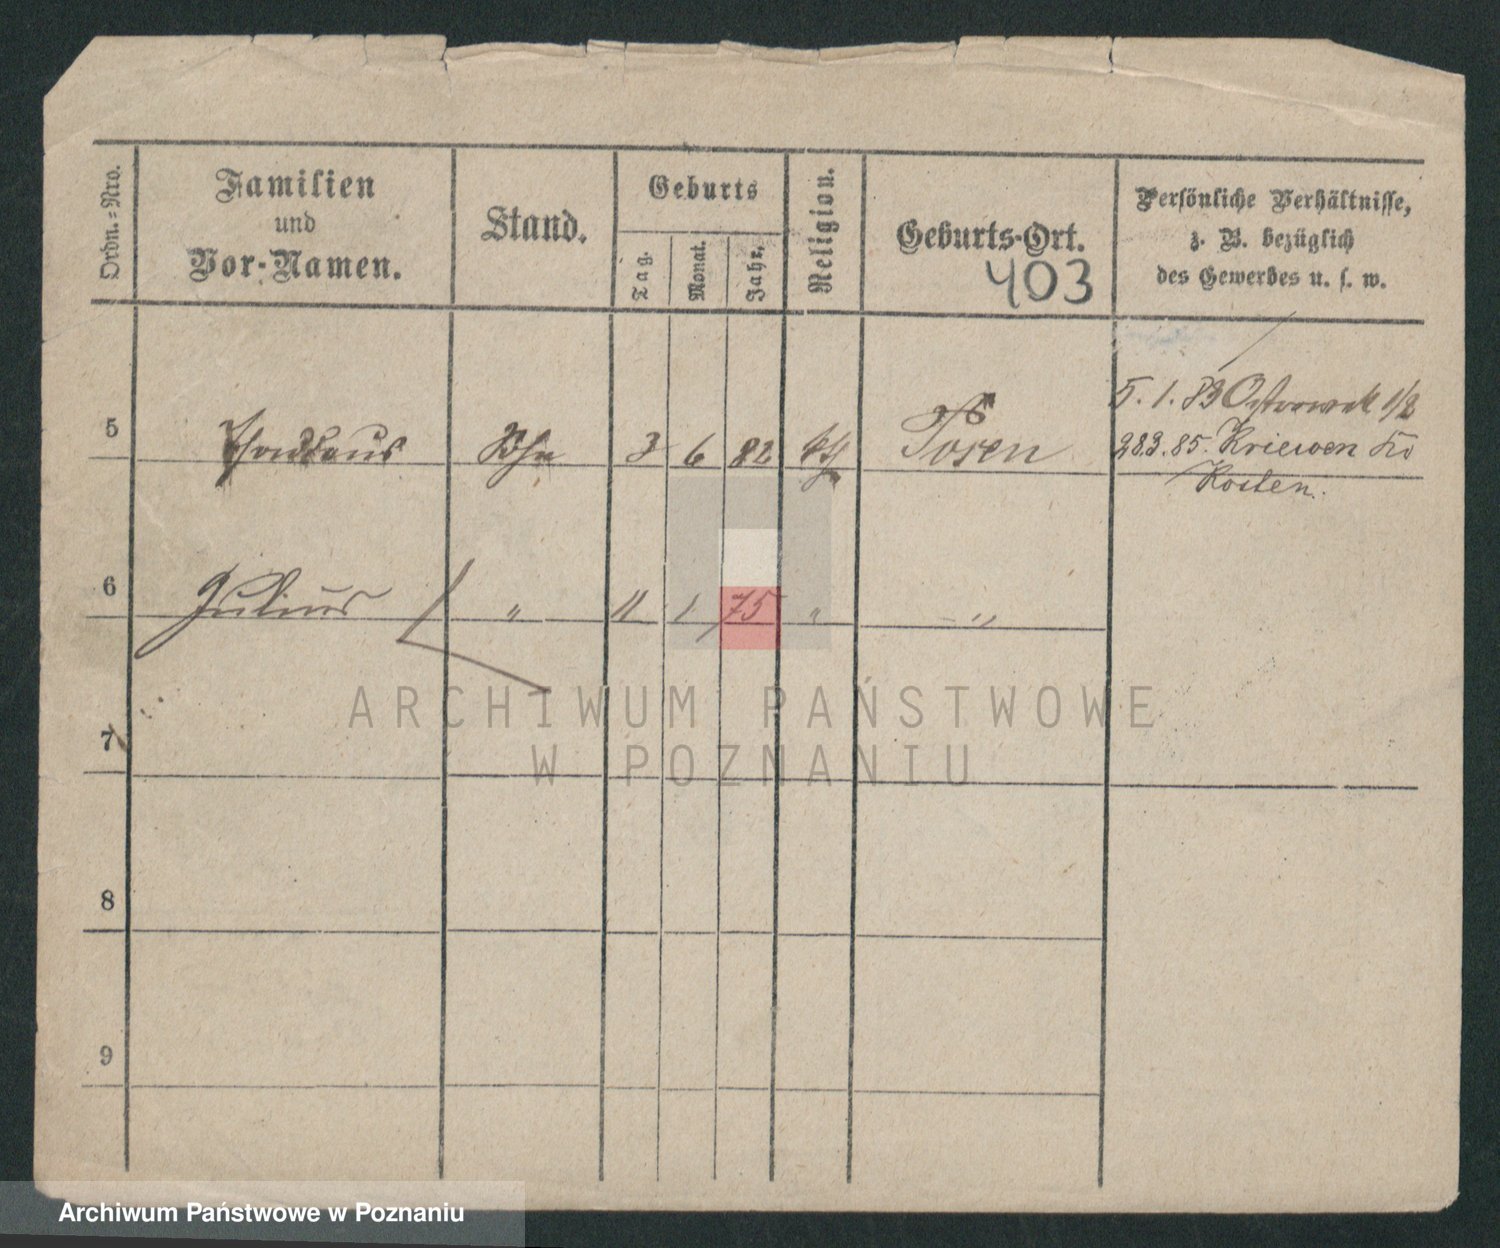 Ordn.=Nro.
Familien
und
Vor-Namen.
Stand.
Geburts
Tag.
Monat.
Jahr.
Religion.
Geburts-Ort.
403
Persönliche Verhältnisse,
z. B. bezüglich
des Gewerbes u. s. w.
5. 1. 83
5 Thadeaus Sohn 3 6 82 kth Posen
283.85. Kriewen Kr
Kosten.
6 Julius " 11 1 75 " "
7
ARCHIWUM PAŃSTWOWE
W POZNANIU
8
9
Archiwum Państwowe w Poznaniu